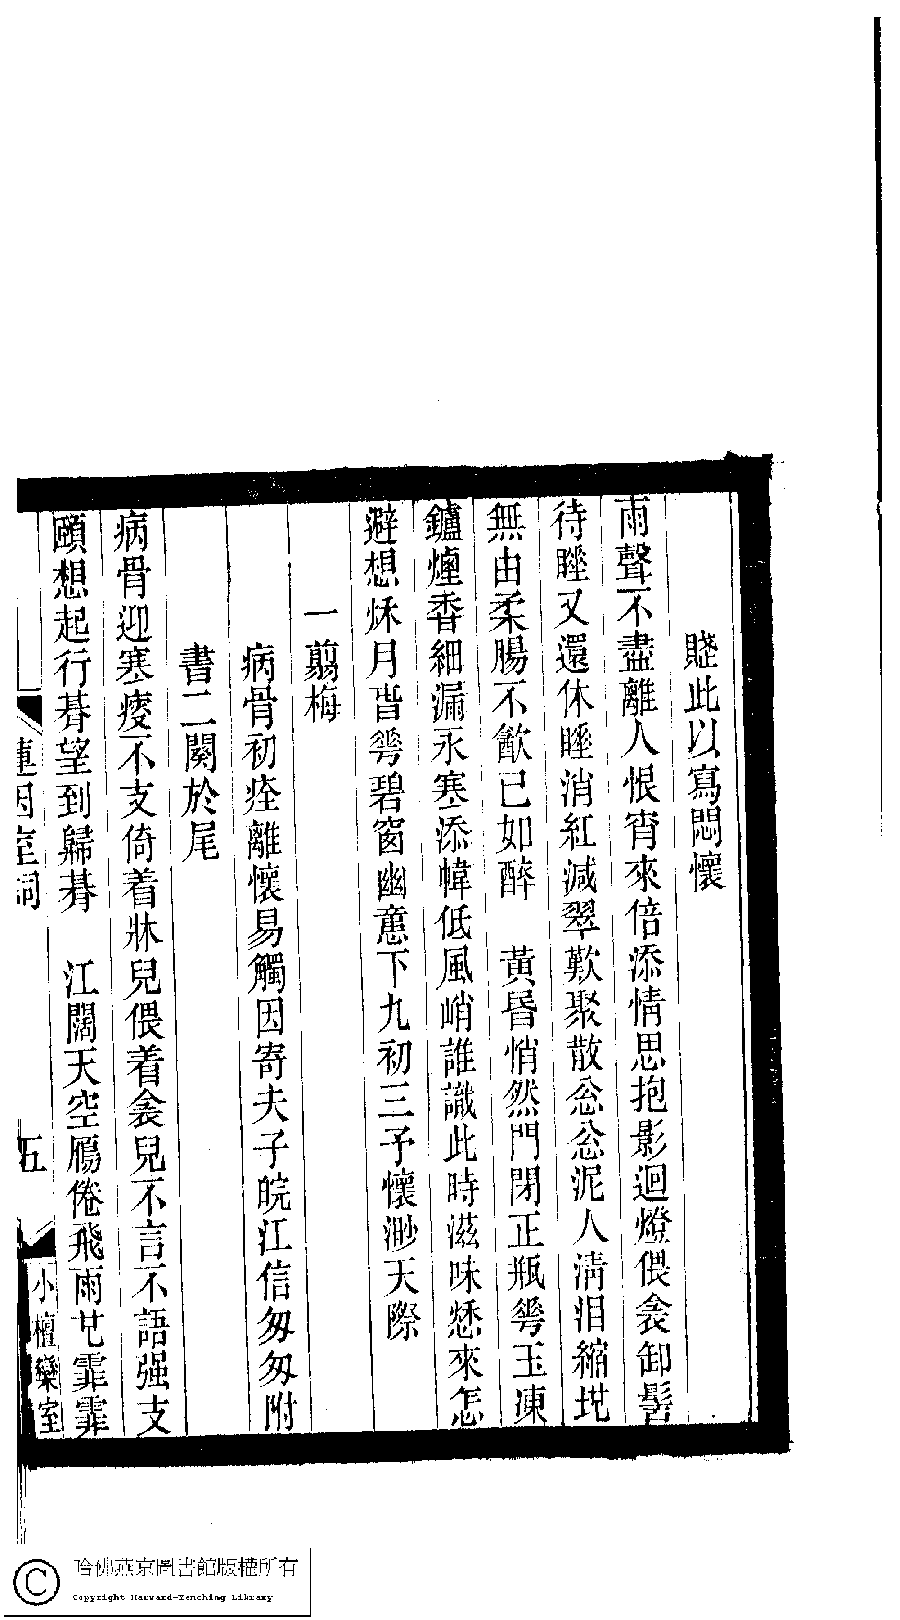 賤此以寫悶懷
雨聲不盡離人恨宵來倍添情思抱影迴燈偎衾卸髻
待睡又還休睡消紅減翠歎聚散忩忩泥人淸泪縮地
無由柔腸不歠已如醉　黃昏悄然門閉正甁甹玉凍
鑪煙香細漏永寒添幃低風峭誰識此時滋味愁來怎
避想烌月眥甹碧窗幽意下九初三予懷渺天際
一翦梅
病骨初痊離懷易觸因寄夫子皖江信匆匆附
書二闋於尾
病骨迎寒瘦不支倚着牀兒偎着衾兒不言不語强支
頤想起行朞望到歸朞　江闊天空鴈倦飛雨也霏霏
蓮因室詞
五
小檀欒室
哈佛燕京圖書館版權所有
Copyright Harvard-Yenching Library